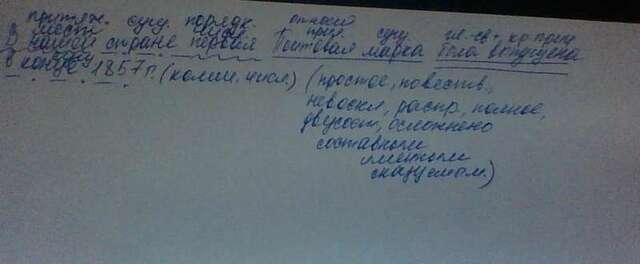 притяж. сущ. порядк. относит.
мест. числ. прил. сущ. гл.-св + кр. прич
В нашей стране первая почтовая марка была выпущена
в конце 1857 г. (колич. числ.) (простое, повеств.,
невоскл, распр, полное,
двусост, осложнено
составным
именным
сказуемым)